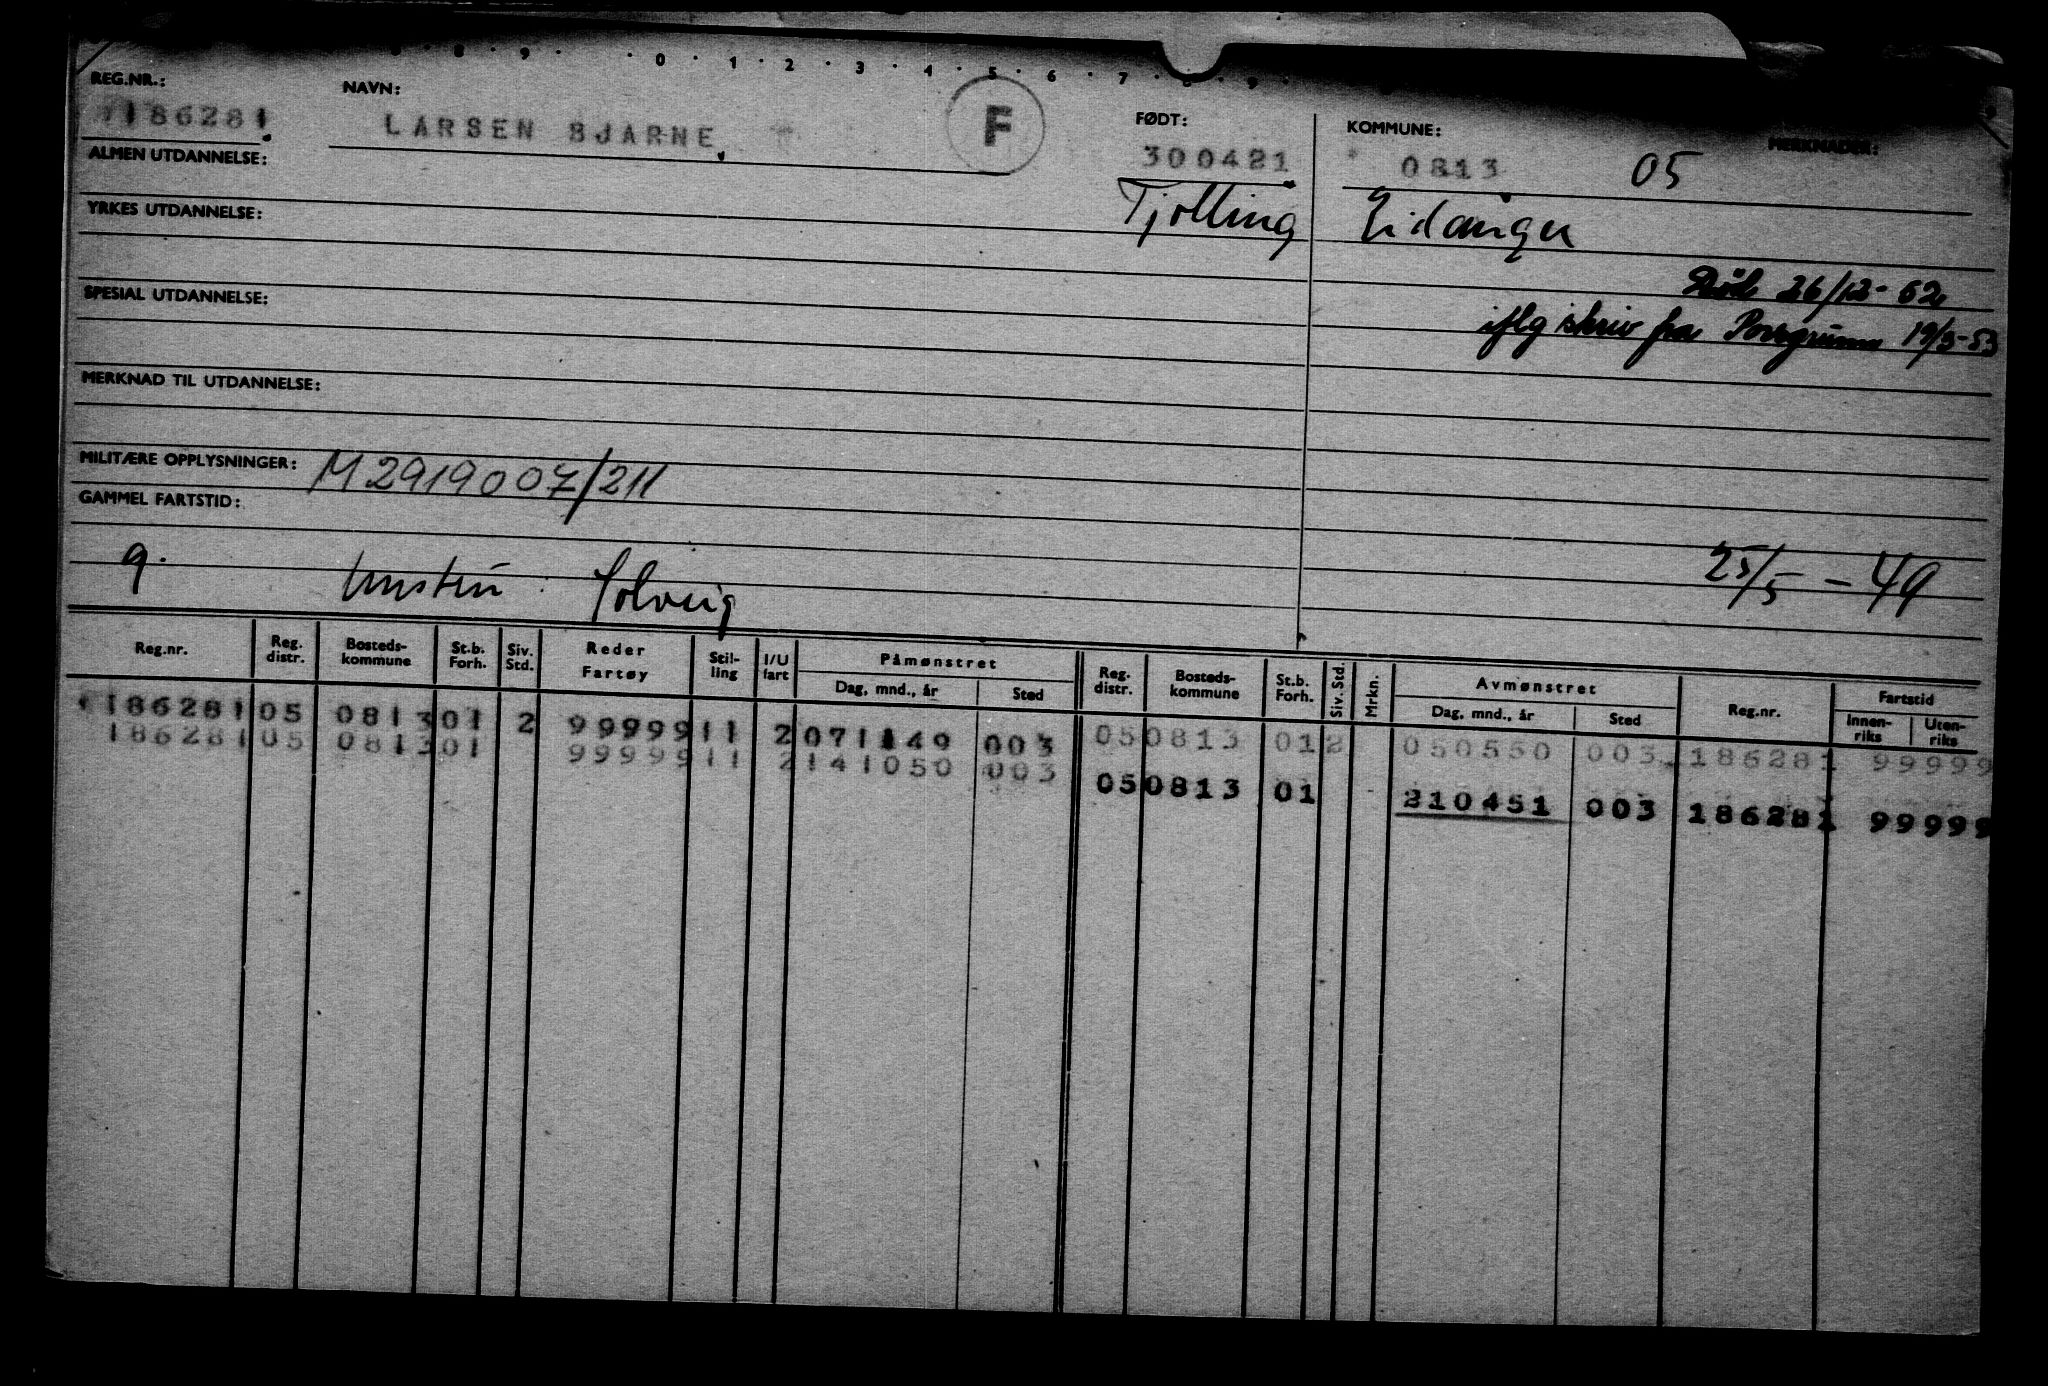 0 · 1 · 2 · 3 · 4 · 5 · 6 · 7 · 8 · 9
REG.NR.: NAVN: FØDT: KOMMUNE: MERKNADER:
186281 LARSEN BJARNE F 300421 0813 05
ALMEN UTDANNELSE:
Tjølling Eidanger
YRKES UTDANNELSE:
Død 26/12-52
SPESIAL UTDANNELSE:
iflg skriv fra Porsgrunn 19/3-53
MERKNAD TIL UTDANNELSE:
MILITÆRE OPPLYSNINGER: M2919007/211
GAMMEL FARTSTID:
g. Solveig 25/5-49
Reg.nr. Reg. distr. Bosteds-kommune St.b. Forh. Siv. Std. Reder Fartøy Stil-ling I/U fart Påmønstret Dag, mnd., år Sted Reg. distr. Bosteds-kommune St.b. Forh. Siv. Std. Mrkn. Avmønstret Dag, mnd., år Sted Reg.nr. Fartstid Innen-riks Uten-riks
186281 05 0813 01 2 99999 11 2 071149 003 05 0813 01 2 050550 003 186281 99999
186281 05 0813 01 99999 11 2 141050 003
05 0813 01 210451 003 186281 99999